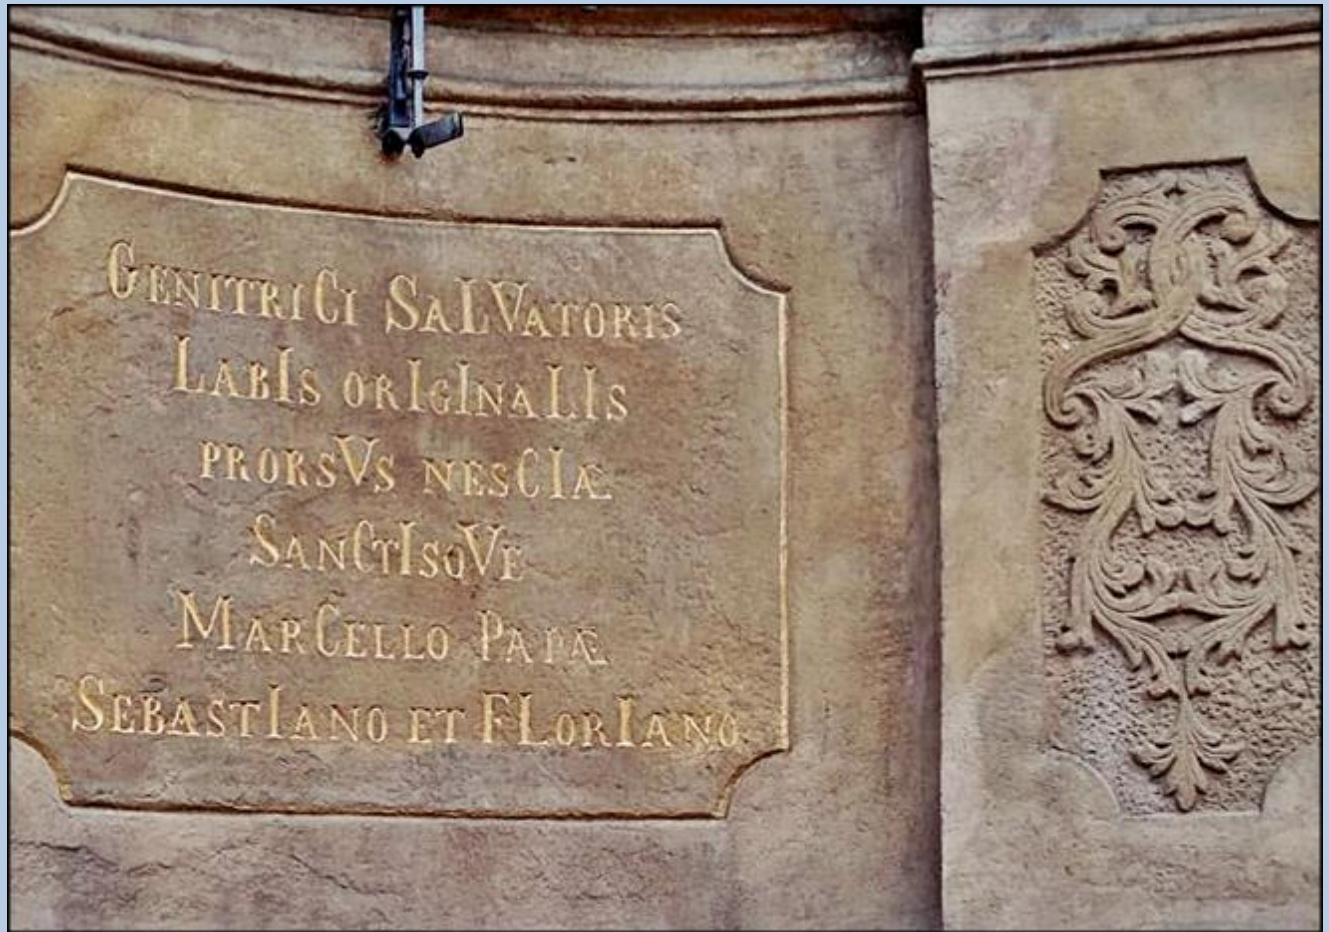 GENITRICI SALVATORIS
LABIS ORIGINALIS
PRORSVS NESCIÆ
SANCTISQVE
MARCELLO PAPÆ
SEBASTIANO ET FLORIANO